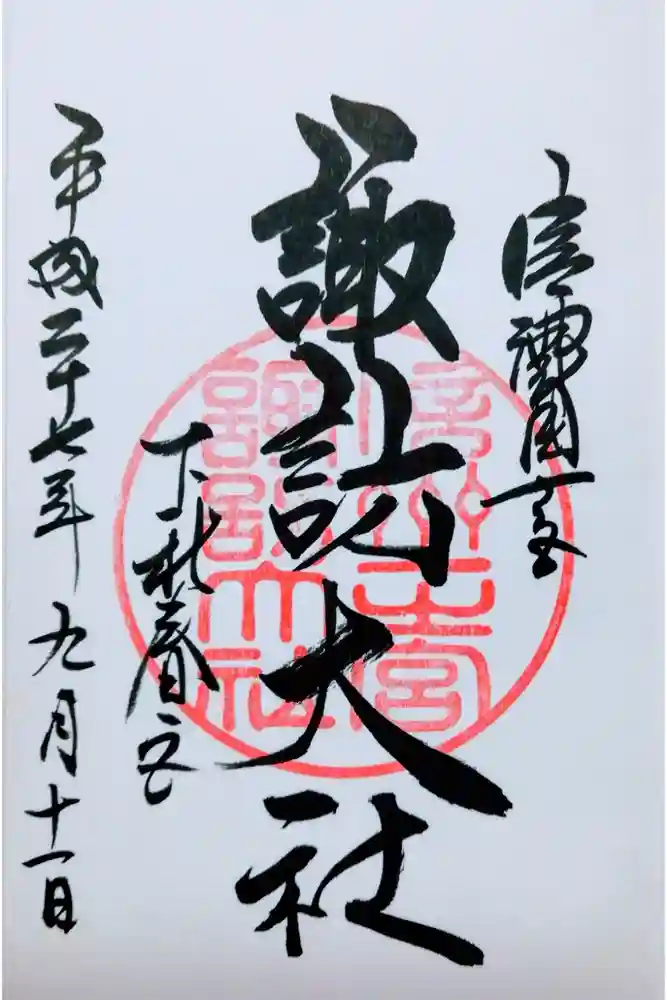 信濃國一宮
諏訪大社
下社春宮
平成二十七年九月十一日
信州一之宮
諏訪大社